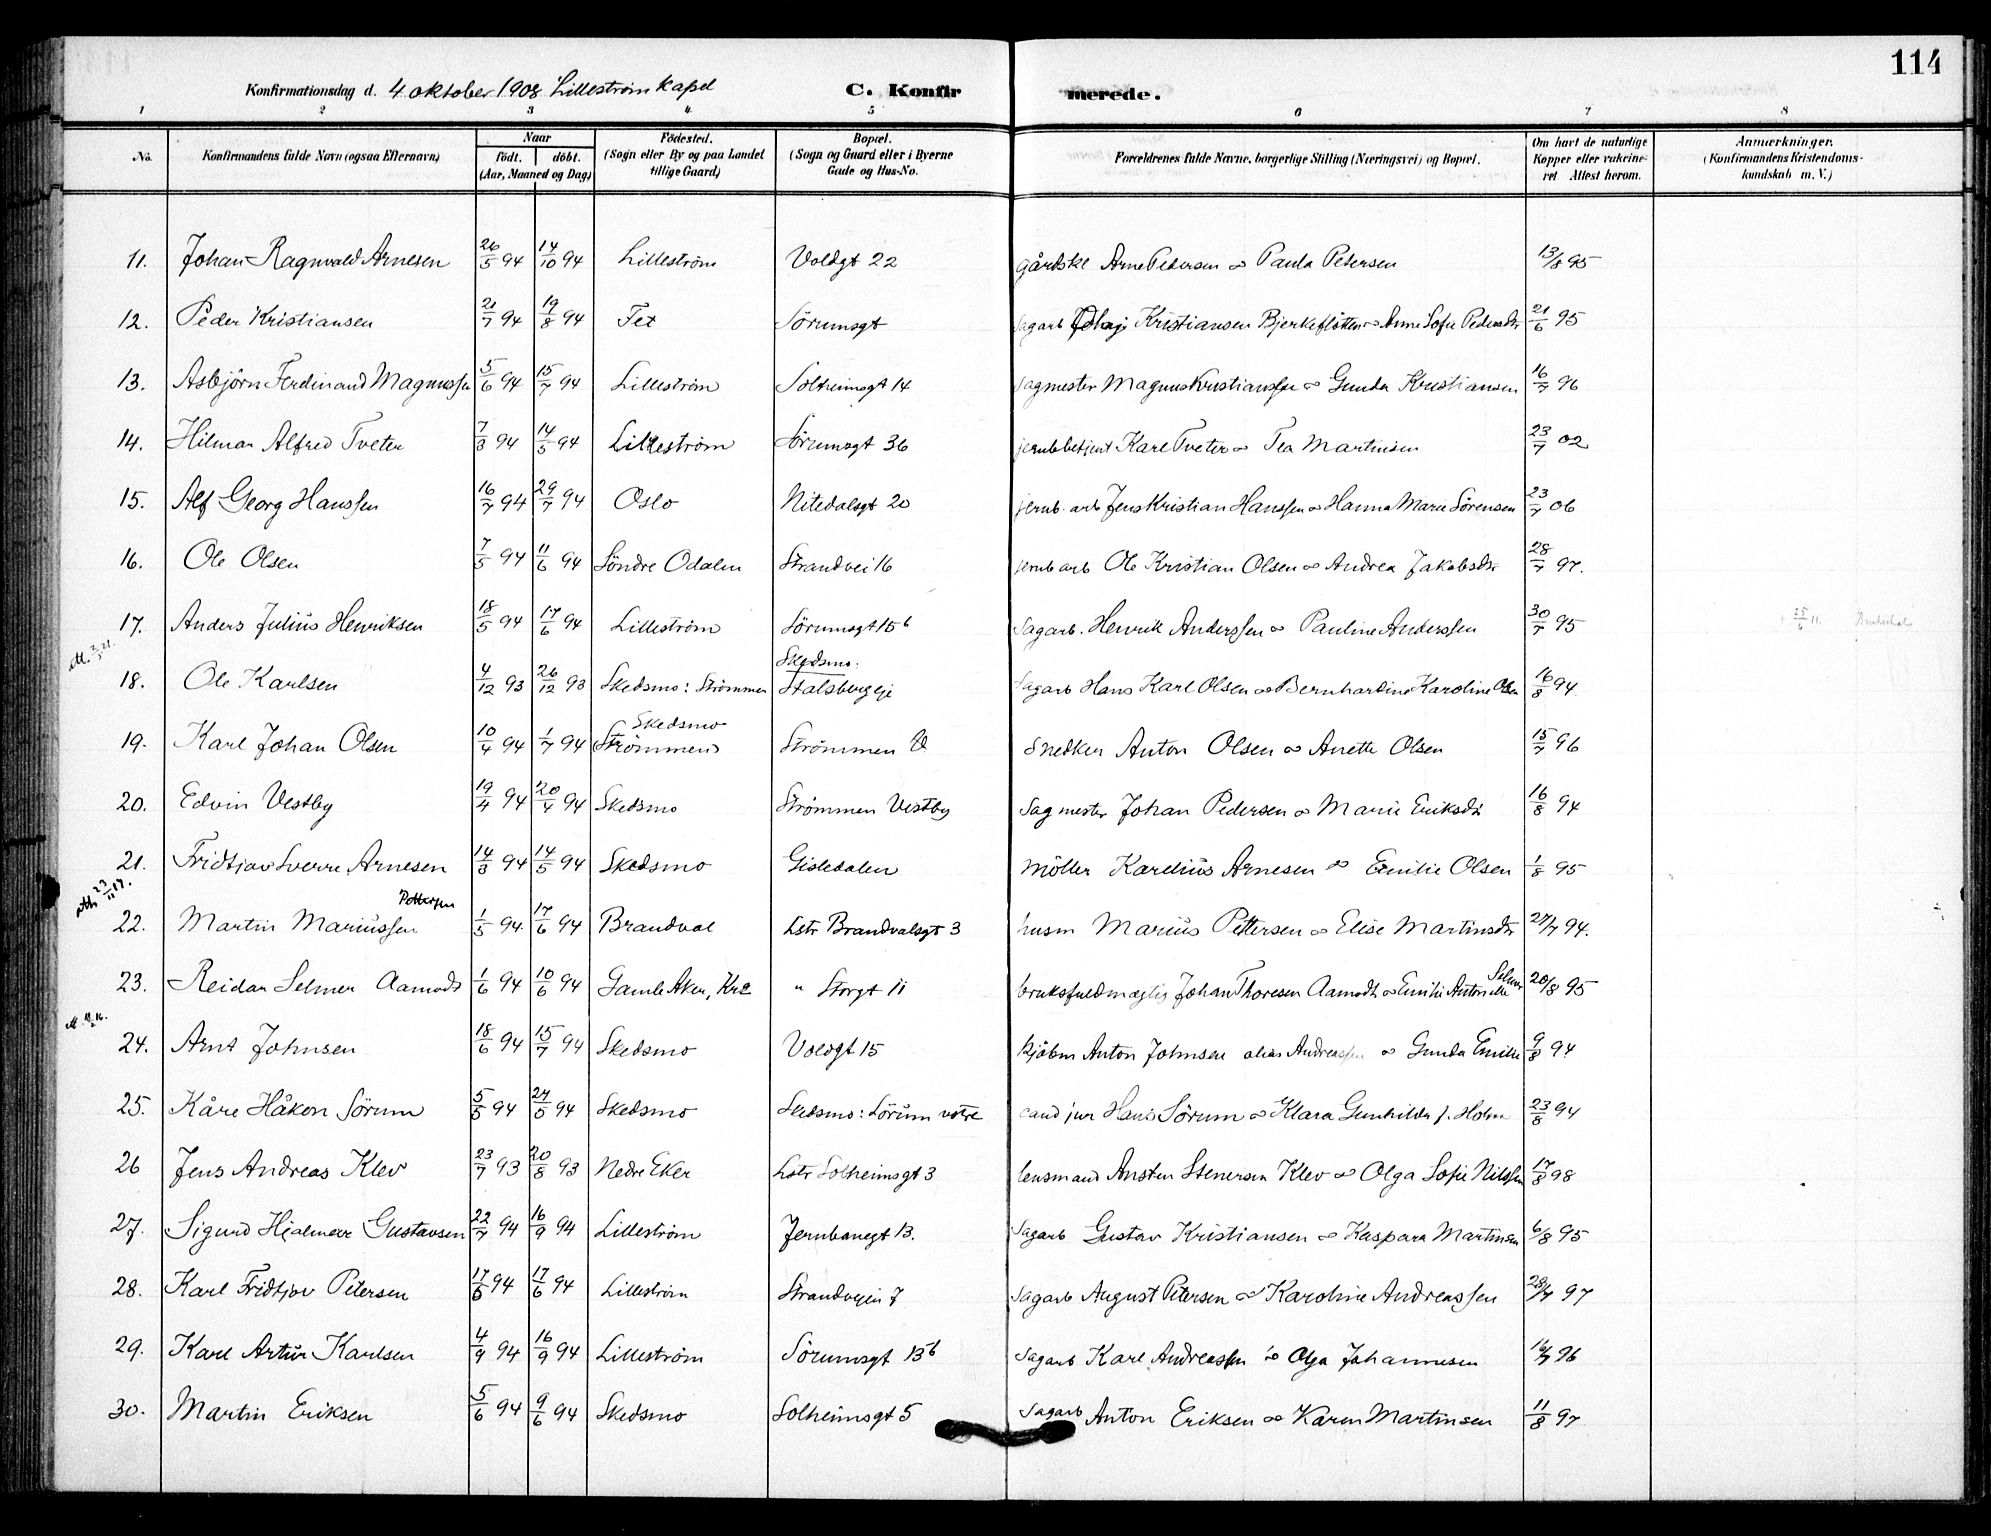 114
Konfirmationsdag d. 4 oktober 1908 Lilleström kapel C. Konfir merede.
1 2 3 4 5 6 7 8
No. Konfirmandens fulde Navn (ogsaa Efternavn) Naar födt. döbt. (Aar, Maaned og Dag) Födested. (Sogn eller By og paa Landet tillige Gaard) Bopæl. (Sogn og Gaard eller i Byerne Gade og Hus-No. Forældrenes fulde Navne, borgerlige Stilling (Næringsvei) og Bopæl. Om havt de naturlige Kopper eller vakcineret Attest herom. Anmærkninger. (Konfirmandens Kristendomskundskab m. V.)
11. Johan Ragnvald Arnesen 26/5 94 14/10 94 Lilleström Voldgt 22 gårdskl Arne Pedersen ∞ Paula Petersen 13/8 95
12. Peder Kristiansen 21/7 94 19/8 94 Fet Sörumsgt sagarb Kristiansen Bjerkeflötten ∞ Anne Sofie Pedersdtr 21/6 95
13. Asbjörn Ferdinand Magnussen 5/6 94 15/7 94 Lilleström Solheimsgt 14 sagmester Magnus Kristianssen ∞ Gunda Kristiansen 16/7 96
14. Hilmar Alfred Tveter 7/3 94 14/5 94 Lilleström Sörumsgt 36 jernbbetjent Karl Tveter ∞ Tea Martinsen 23/7 02
15. Alf Georg Hanssen 16/7 94 29/7 94 Oslo Nitedalsgt 20 jernb. arb Jens Kristian Hanssen ∞ Hanna Marie Sörensen 23/7 06
16. Ole Olsen 7/5 94 11/6 94 Söndre Odalen Strandvei 16 jernb arb Ole Kristian Olsen ∞ Andrea Jakobsdtr 28/7 97.
17. Anders Julius Henriksen 18/5 94 17/6 94 Lilleström Sörumsgt 15 b Sagarb. Henrik Anderssen ∞ Pauline Anderssen 30/7 95 + 25/6 11.
18. Ole Karlsen 4/12 93 26/12 93 Skedsmo: Strömmen Skedsmo: Stalsberg eje Sagarb Hans Karl Olsen ∞ Bernhardine Karoline Olsen 16/8 94
19. Karl Johan Olsen 10/4 94 1/7 94 Skedsmo Strömmen Strömmen V Snedker Anton Olsen ∞ Anette Olsen 15/7 96
20. Edvin Vestby 19/4 94 20/4 94 Skedsmo Strömmen Vestby Sagmester Johan Pedersen ∞ Marie Eriksdtr 16/8 94
21. Fridtjov Sverre Arnesen 14/3 94 14/5 94 Skedsmo Gisledalen Möller Karelius Arnesen ∞ Emilie Olsen 1/8 95
att. 23/11 17. Pettersen
22. Martin Mariussen 1/5 94 17/6 94 Brandval Lstr Brandvalsgt 3 husm Marius Pettersen ∞ Elise Martinsdtr 27/7 94.
23. Reidar Selmer Aamodt 1/6 94 10/6 94 Gamle Aker, Kra " Storgt 11 bruksfuldmægtig Johan Thoresen Aamodt ∞ Emilie Antonette Selmer 20/8 95
24. Arnt Johnsen 18/6 94 15/7 94 Skedsmo Voldgt 15 kjöbm Anton Johnsen alias Andreassen ∞ Gunda Emilie 9/8 94
25. Kåre Håkon Sörum 5/5 94 27/5 94 Skedsmo Skedsmo: Sörum vstre cand jur Hans Sörum ∞ Klara Gunhilda f. Holm 23/8 94
26 Jens Andreas Klev 23/7 93 20/8 93 Nedre Eker Lstr Solheimsgt 3 lensmand Ansten Stenersen Klev ∞ Olga Sofie Nilssen 17/8 98
27. Sigurd Hjalmar Gustavsen 22/7 94 16/9 94 Lilleström Jernbanegt 13. Sagarb Gustav Kristiansen ∞ Kaspara Martinsen 6/8 95
28. Karl Fridtjov Petersen 17/5 94 17/6 94 Lilleström Strandvejen 7 Sagarb August Petersen ∞ Karoline Andreassen 28/7 97
29. Karl Artur Karlsen 4/9 94 16/9 94 Lilleström Sörumsgt 13 b Sagarb Karl Andreassen ∞ Olga Johannesen 16/7 96
30. Martin Eriksen 5/6 94 9/6 94 Skedsmo Solheimsgt 5 Sagarb Anton Eriksen ∞ Karen Martinsen 11/8 97